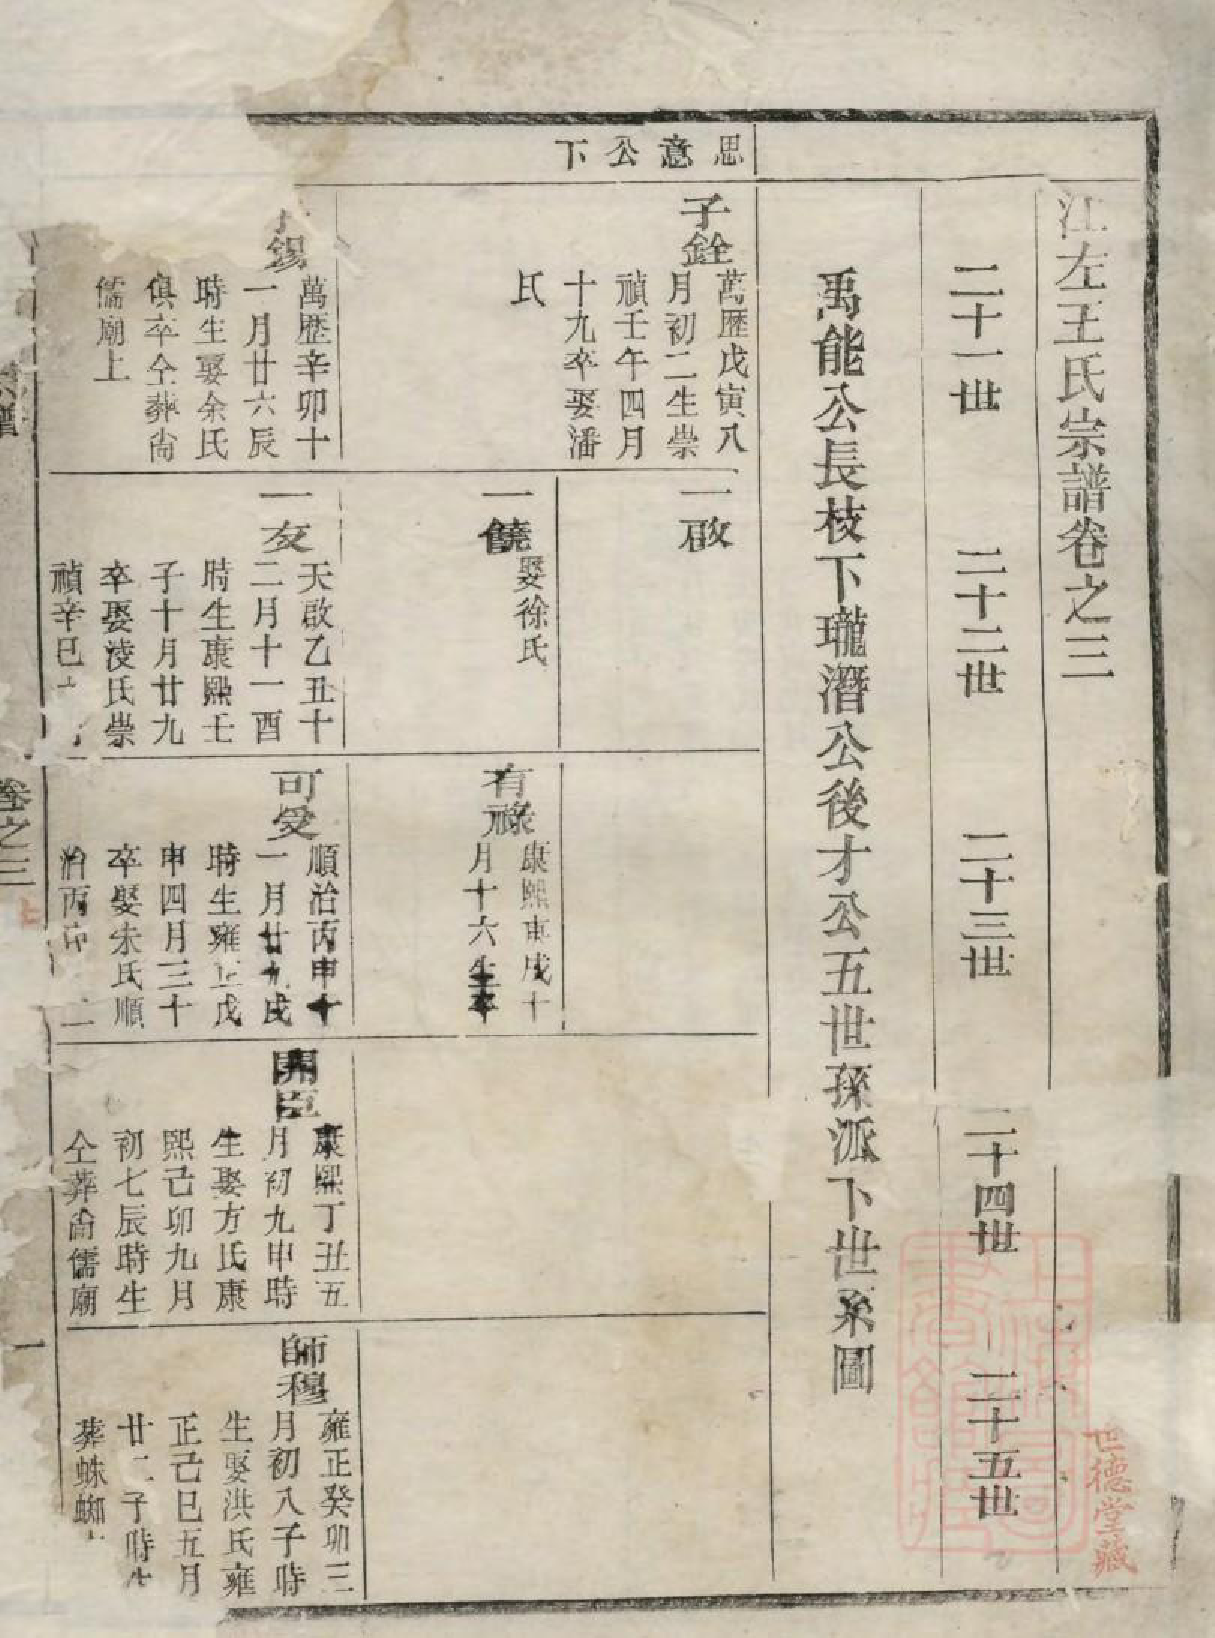 江左王氏宗譜卷之三
二十一世
二十二世
二十三世
二十四世
二十五世
禹能公長枝下瓏潛公後才公五世孫派下世系圖
思意公下
子銓
萬歷戊寅八
月初二生崇
禎壬午四月
十九卒娶潘
氏
一啟
一饒
娶徐氏
有祿
康熙庚戌十
月十六生卒
錫
萬歷辛卯十
一月廿六辰
時生娶余氏
俱卒仝葬尙
儒廟上
一友
天啟乙丑十
二月十一酉
時生康熙壬
子十月廿九
卒娶淩氏崇
禎辛巳
可受
順治丙申十
一月廿九戌
時生雍正戊
申四月三十
卒娶朱氏順
治丙申 二
開臣
康熙丁丑五
月初九申時
生娶方氏康
熙己卯九月
初七辰時生
仝葬尙儒廟
師穆
雍正癸卯三
月初八子時
生娶洪氏雍
正己巳五月
廿二子時生
葬蛛蜘
宗譜
卷之三
一
世德堂藏